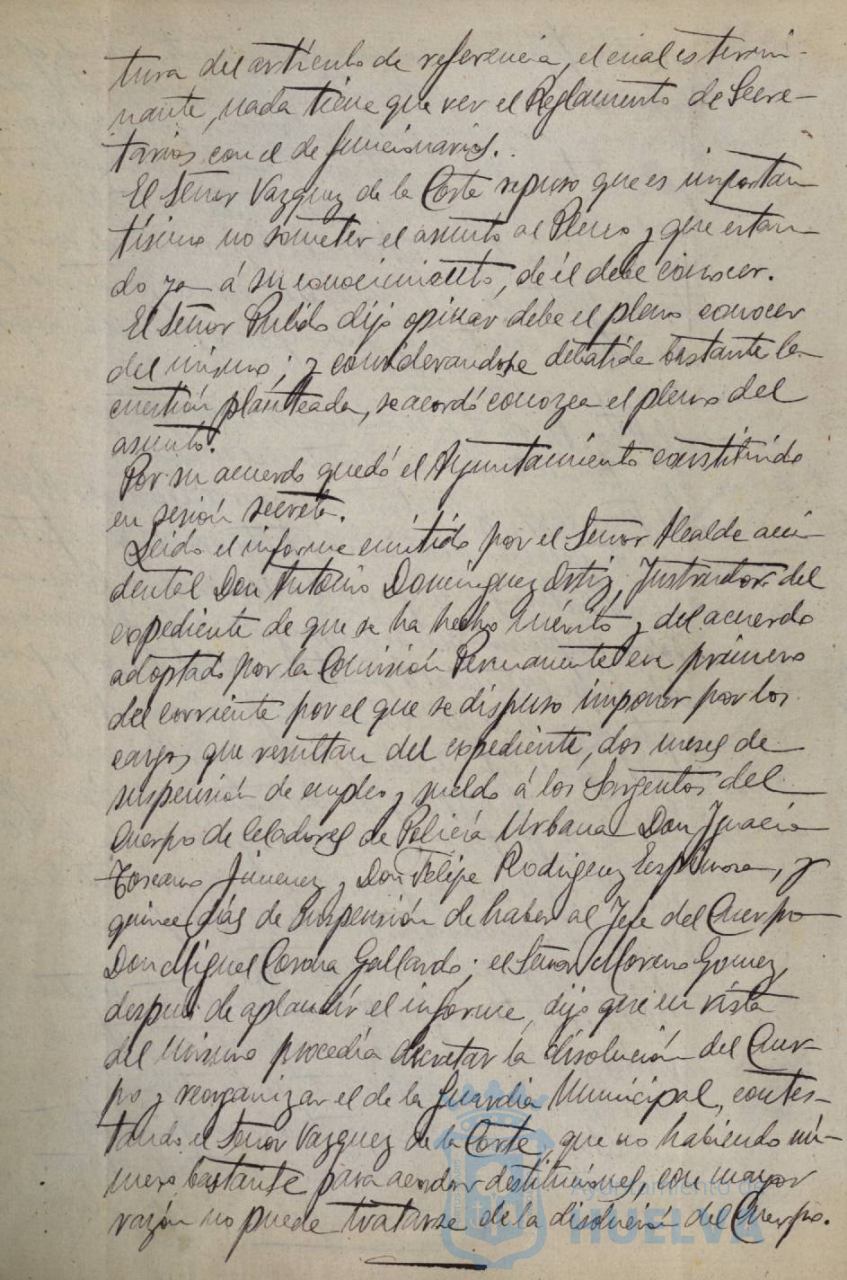 tura del artículo de referencia, el cual es termi-
nante, nada tiene que ver el Reglamento de Secre-
tarios con el de funcionarios.
El Señor Vazquez de la Corte repuso que es importan-
tísimo no someter el asunto al Pleno y que estan-
do ya á su conocimiento, de él debe conocer.
El Señor Pulido dijo opinar debe el pleno conocer
del mismo; y considerandose debatida bastante la
cuestión planteada, se acordó conozca el pleno del
asunto.
Por su acuerdo quedó el Ayuntamiento constituido
en sesión secreta.
Leido el informe emitido por el Señor Alcalde acci-
dental Don Antonio Domínguez Ortiz, Instructor del
expediente de que se ha hecho mérito y del acuerdo
adoptado por la Comisión Permanente en primero
del corriente por el que se dispuso imponer por los
cargos que resultan del expediente, dos meses de
suspensión de empleo y sueldo á los Sargentos del
Cuerpo de Celadores de Policía Urbana Don Ignacio
Toscano Jimenez y Don Felipe Rodriguez Espinosa, y
quince días de suspensión de haber al Jefe del Cuerpo
Don Miguel Corona Gallardo; el Señor Moreno Gomez,
después de aplaudir el informe, dijo que en vista
del mismo procedía decretar la disolución del Cuer-
po y reorganizar el de la Guardia Municipal, contes-
tando el Señor Vazquez de la Corte, que no habiendo nú-
mero bastante para acordar destituciones, con mayor
razón no puede tratarse de la disolución del Cuerpo.
Ayuntamiento de
HUELVA